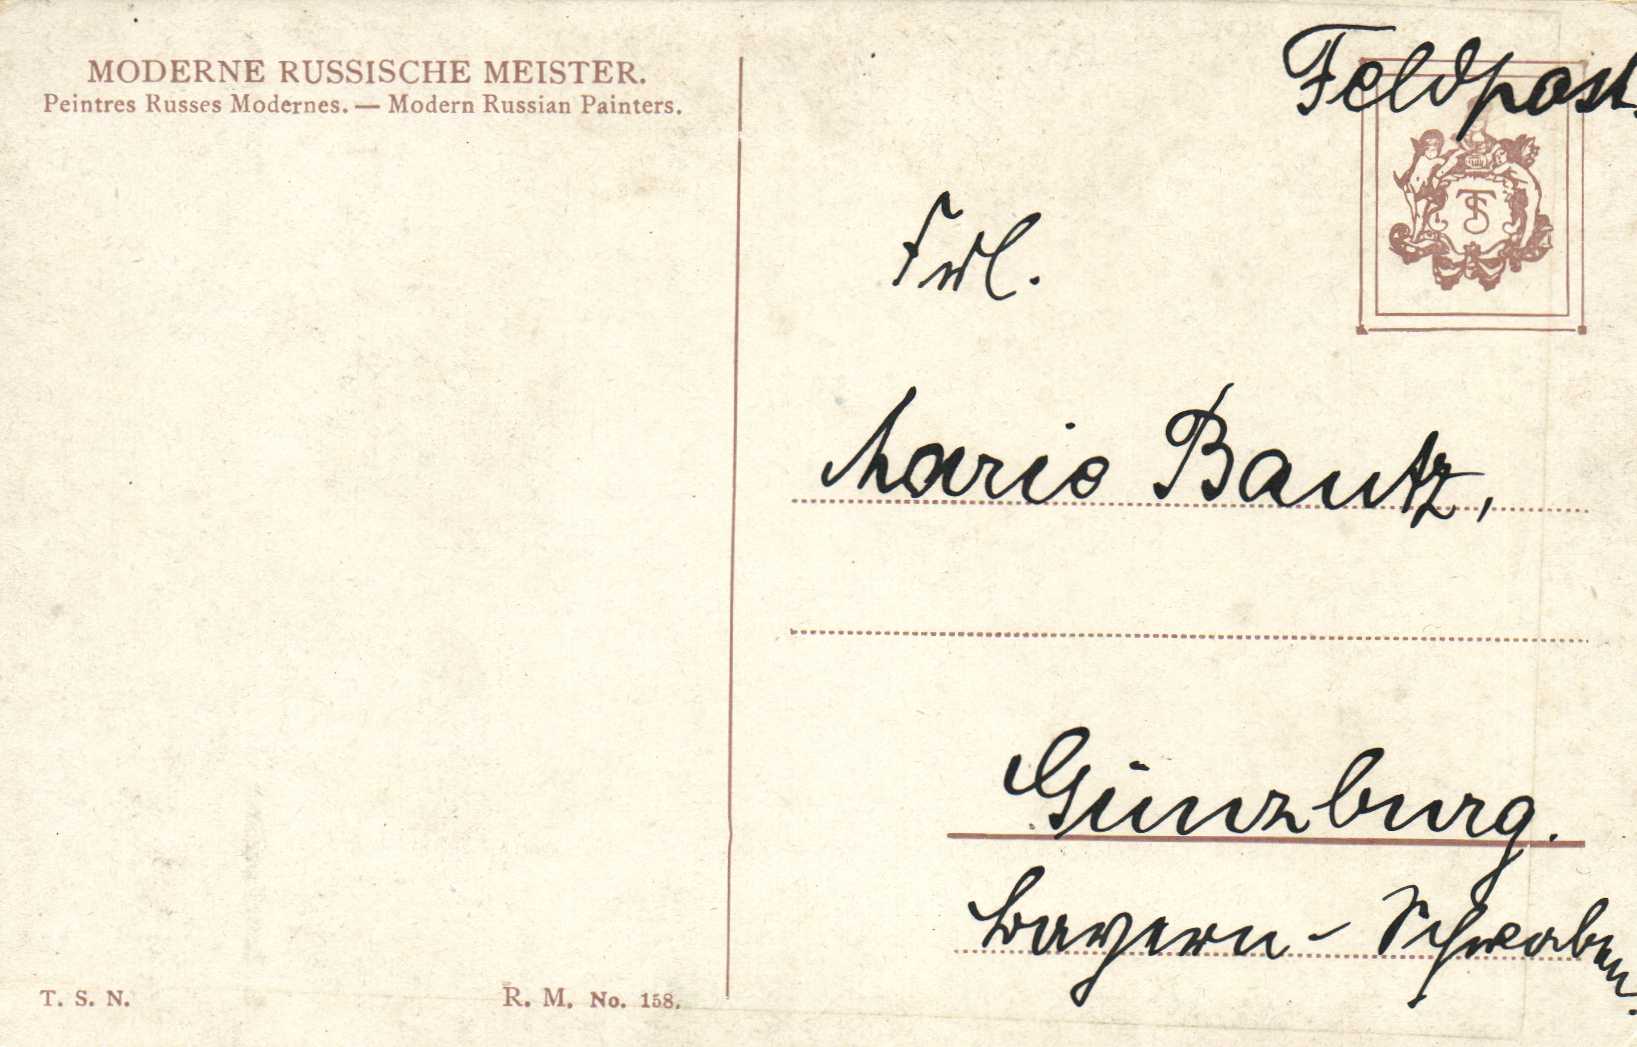 MODERNE RUSSISCHE MEISTER.
Peintres Russes Modernes. — Modern Russian Painters.
Feldpost.
TS
Frl.
Marie Bautz,
Günzburg.
Bayern - Schwaben.
T. S. N.
R. M. No. 158.